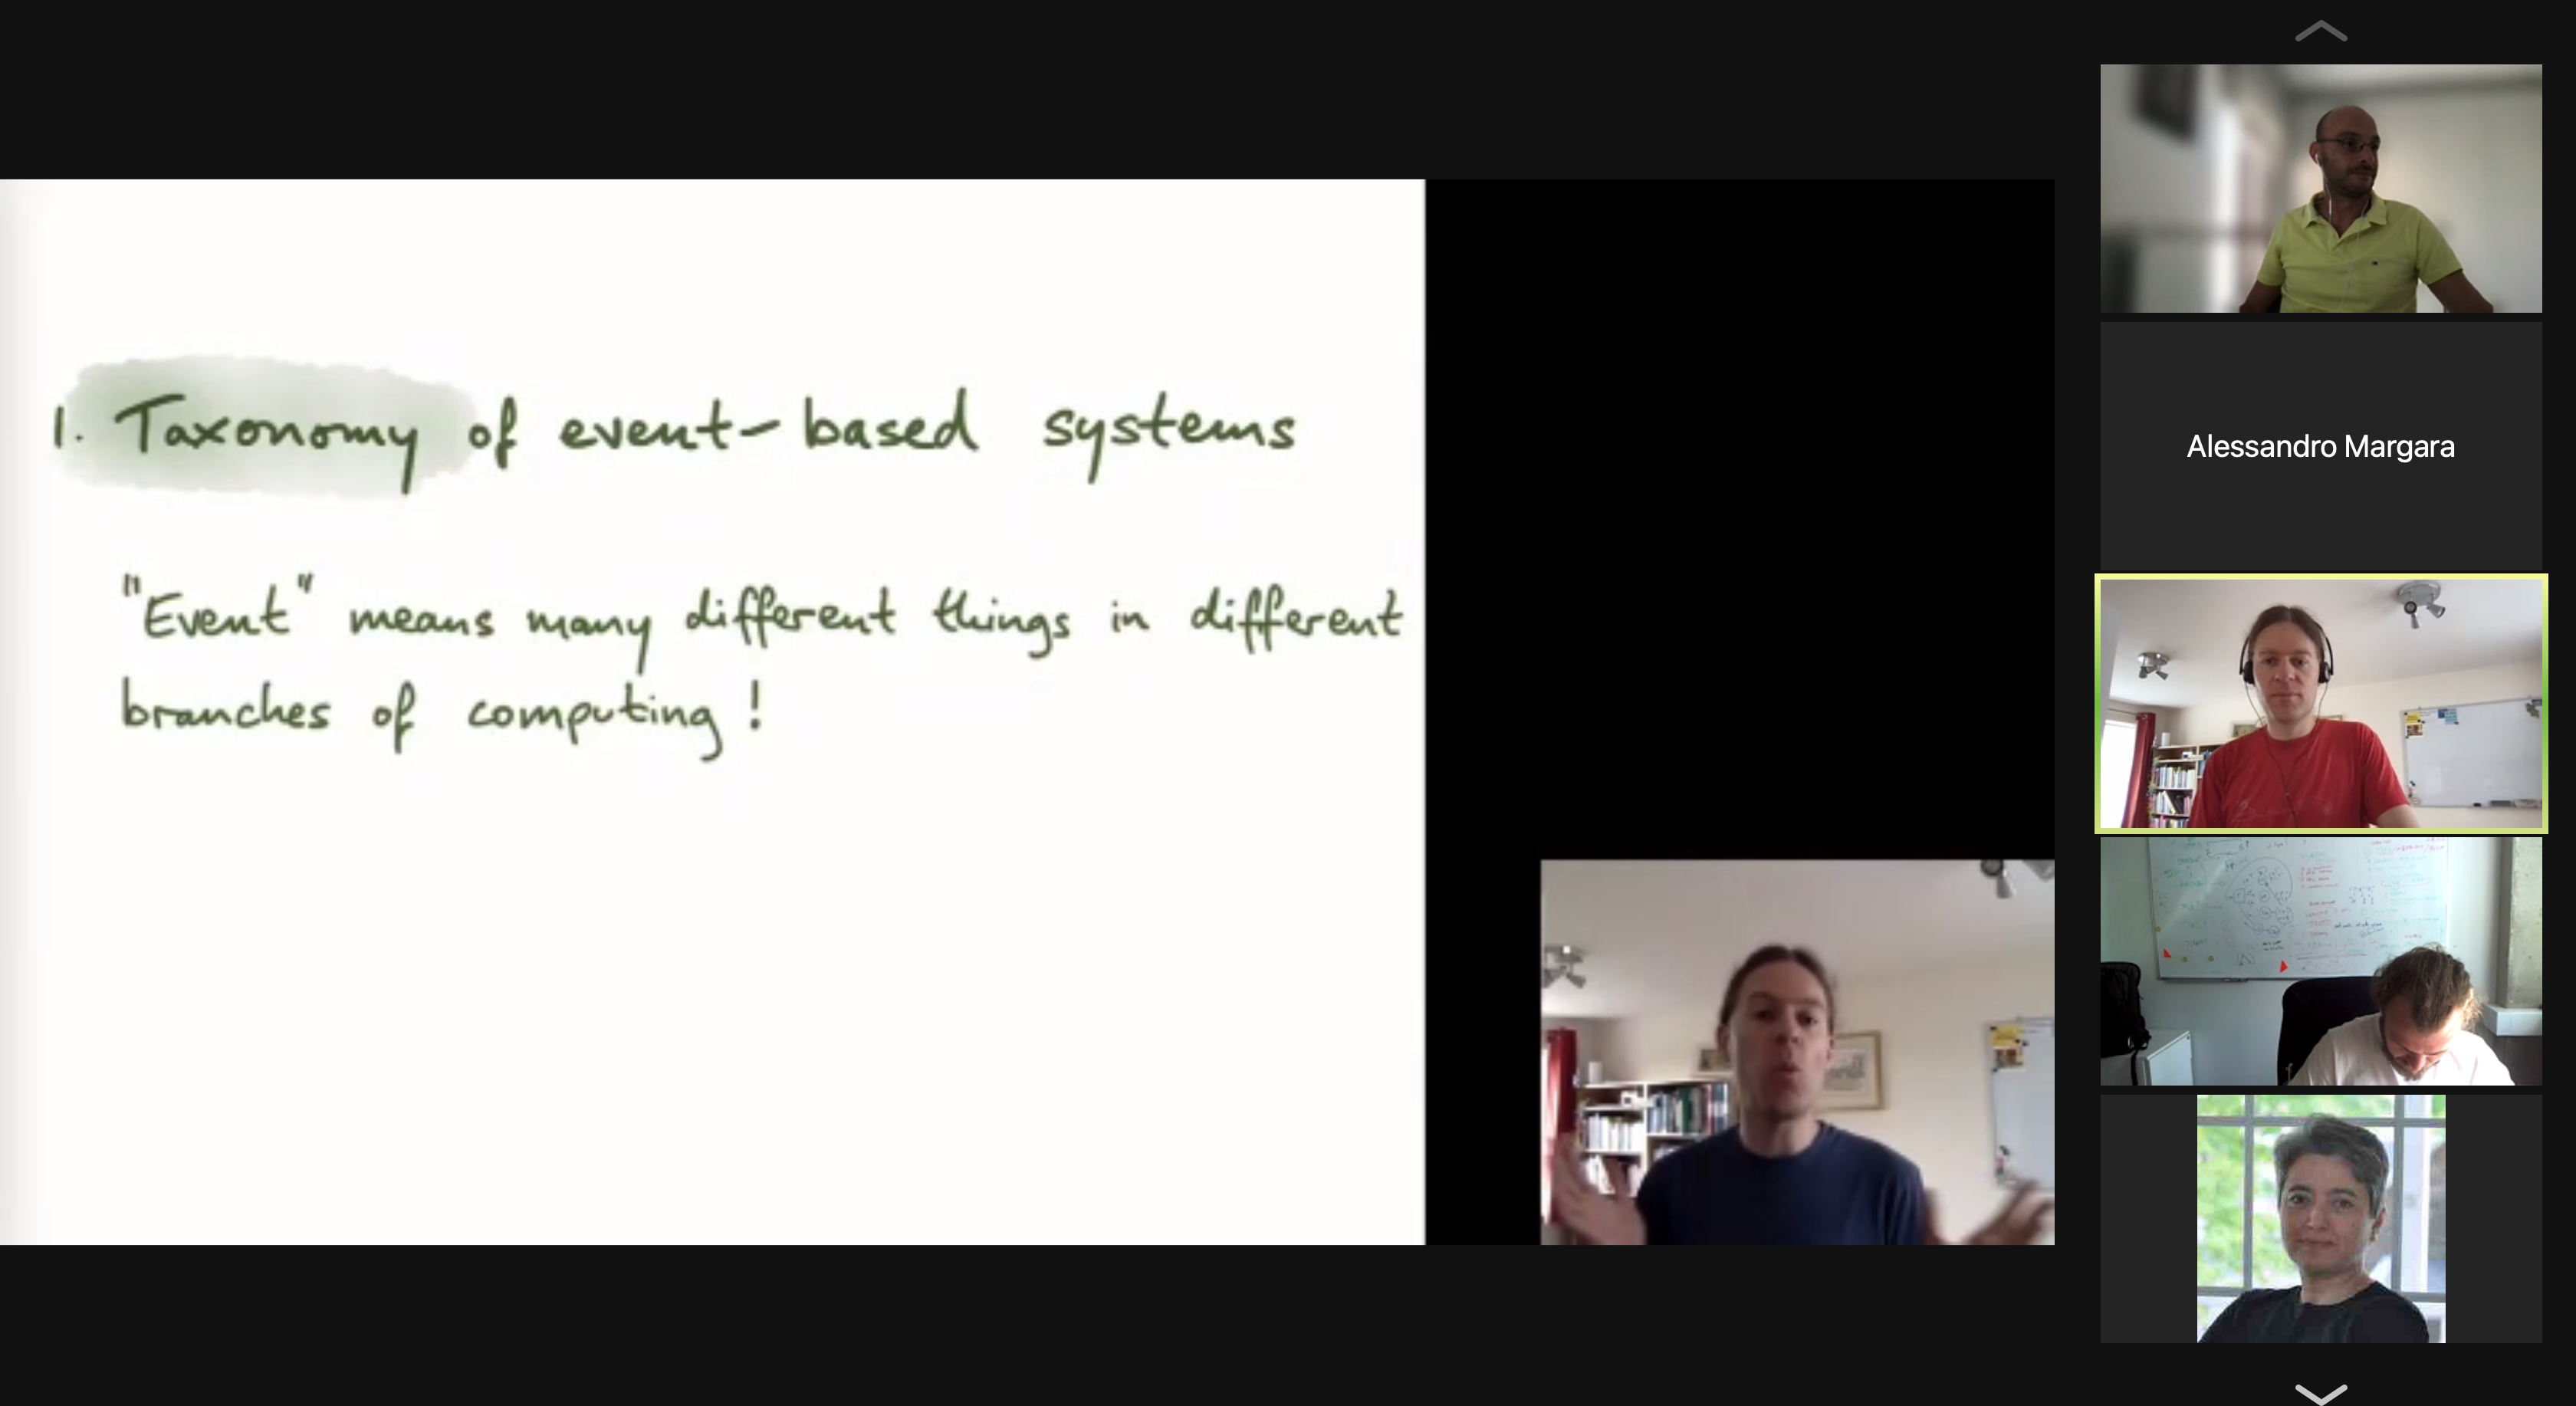 1. Taxonomy of event-based systems
"Event" means many different things in different
branches of computing!
Alessandro Margara